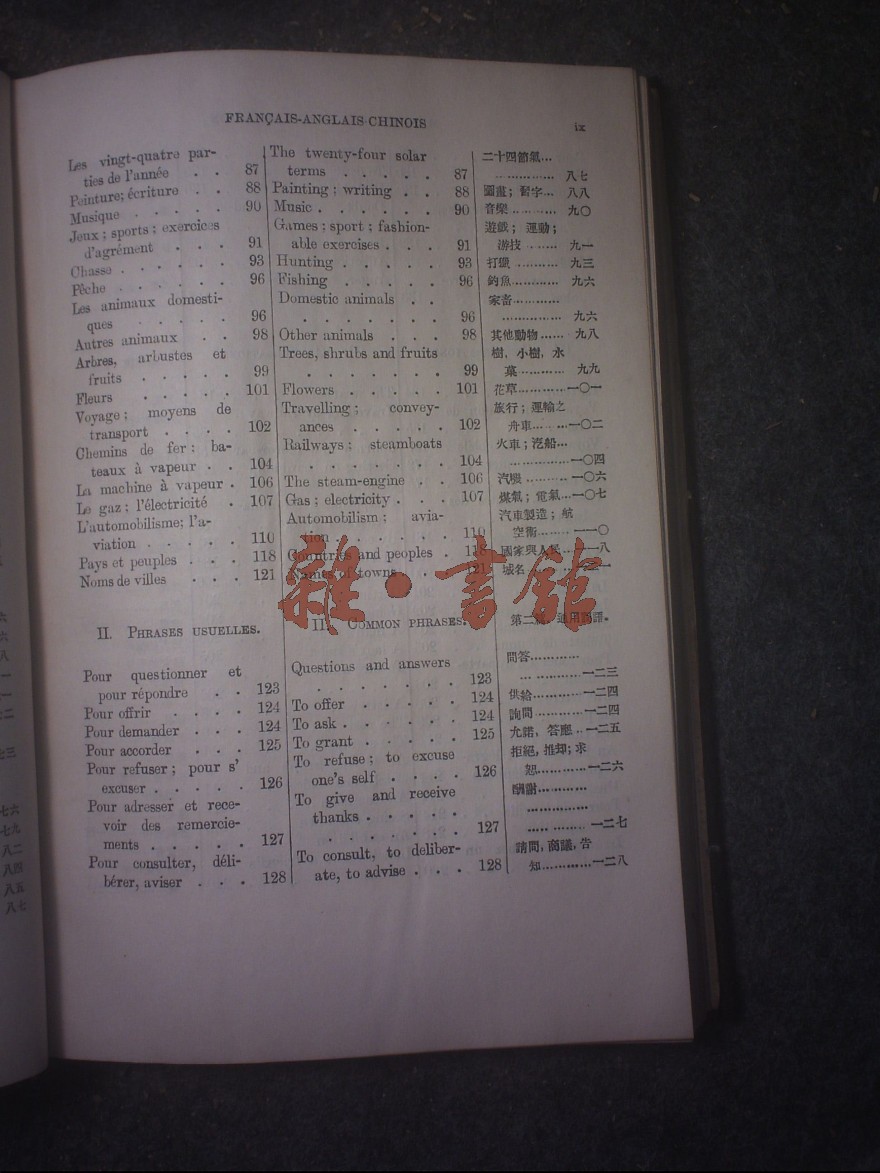 FRANÇAIS-ANGLAIS-CHINOIS
ix
Les vingt-quatre par-
ties de l'année . . 87
Peinture; écriture . . 88
Musique . . . . . 90
Jeux; sports; exercices
d'agrément . . . 91
Chasse . . . . . . 93
Pêche . . . . . . 96
Les animaux domesti-
ques . . . . . 96
Autres animaux . . 98
Arbres, arbustes et
fruits . . . . . 99
Fleurs . . . . . 101
Voyage; moyens de
transport . . . . 102
Chemins de fer: ba-
teaux à vapeur . . 104
La machine à vapeur . 106
Le gaz; l'électricité . 107
L'automobilisme; l'a-
viation . . . . . 110
Pays et peuples . . . 118
Noms de villes . . . 121
II. PHRASES USUELLES.
Pour questionner et
pour répondre . . 123
Pour offrir . . . . 124
Pour demander . . . 124
Pour accorder . . . 125
Pour refuser; pour s'
excuser . . . . . 126
Pour adresser et rece-
voir des remercie-
ments . . . . . 127
Pour consulter, déli-
bérer, aviser . . . 128
The twenty-four solar
terms . . . . . 87
Painting; writing . . 88
Music . . . . . . 90
Games; sport; fashion-
able exercises . . . 91
Hunting . . . . . 93
Fishing . . . . . 96
Domestic animals . .
. . . . . . . 96
Other animals . . . 98
Trees, shrubs and fruits
. . . . . . . 99
Flowers . . . . . 101
Travelling; convey-
ances . . . . . 102
Railways; steamboats
. . . . . . . 104
The steam-engine . . 106
Gas; electricity . . . 107
Automobilism; avia-
tion . . . . . . 110
Countries and peoples . 118
Names of towns . . . 121
II. COMMON PHRASES.
Questions and answers
. . . . . . . 123
To offer . . . . . 124
To ask . . . . . . 124
To grant . . . . . 125
To refuse; to excuse
one's self . . . . 126
To give and receive
thanks . . . . .
. . . . . . . 127
To consult, to deliber-
ate, to advise . . . 128
二十四節氣...
.............. 八七
圖畫; 習字... 八八
音樂........... 九〇
遊戲; 運動;
游技....... 九一
打獵........... 九三
釣魚........... 九六
家畜............
.............. 九六
其他動物...... 九八
樹, 小樹, 水
菓............ 九九
花草............一〇一
旅行; 運輸之
舟車.........一〇二
火車; 汽船...
..............一〇四
汽機............一〇六
煤氣; 電氣...一〇七
汽車製造; 航
空術.........一一〇
國家與人民...一一八
城名............一二一
第二編 通用短語。
問答............
..............一二三
供給............一二四
詢問............一二四
允諾, 答應..一二五
拒絕, 推却; 求
恕............一二六
酬謝............
..............
..............一二七
請問, 商議, 告
知............一二八
雜·書館